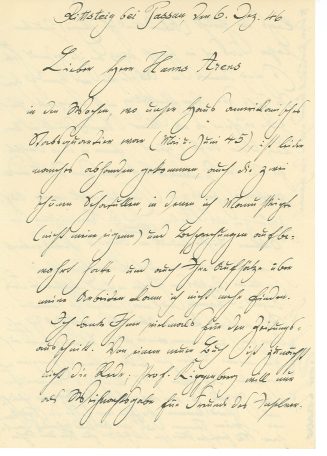 Rittsteig bei Passau den 6. Dez. 46
Lieber Herr Hanns Arens
in den Wochen, wo unser Haus amerikanisches
Stabsquartier war (Mai u. Juni 45), ist leider
manches abhanden gekommen, auch die zwei
Schatullen in denen ich Manuskripte
(nicht meine eigenen) und Besprechungen aufbe-
wahrt hatte und auch Ihre Aufsätze über
meine Arbeiten kann ich nicht mehr finden.
Ich danke Ihnen vielmals für den Zeitungs-
ausschnitt. Von einem neuen Buch ist zunächst
nicht die Rede; Prof. Kippenberg will nur
als Weihnachtsgabe für Freunde des Inselver-